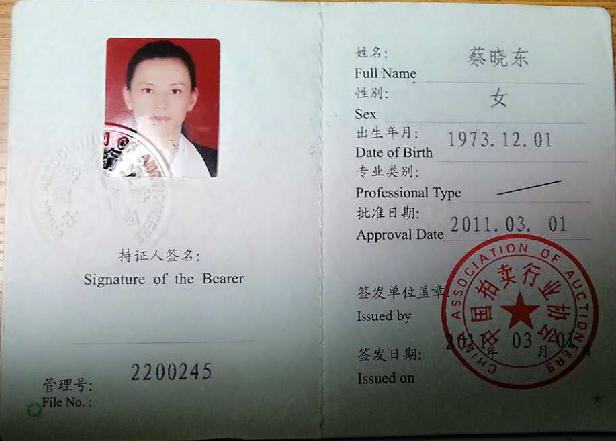 持证人签名:
Signature of the Bearer
管理号:
File No. :
2200245
姓名:
Full Name
蔡晓东
性别:
Sex
女
出生年月:
Date of Birth
1973.12.01
专业类别:
Professional Type
批准日期:
Approval Date
2011.03. 01
签发单位盖章
Issued by
CHINA ASSOCIATION OF AUCTIONEERS
中国拍卖行业协会
签发日期:
Issued on
2011年 03月 01